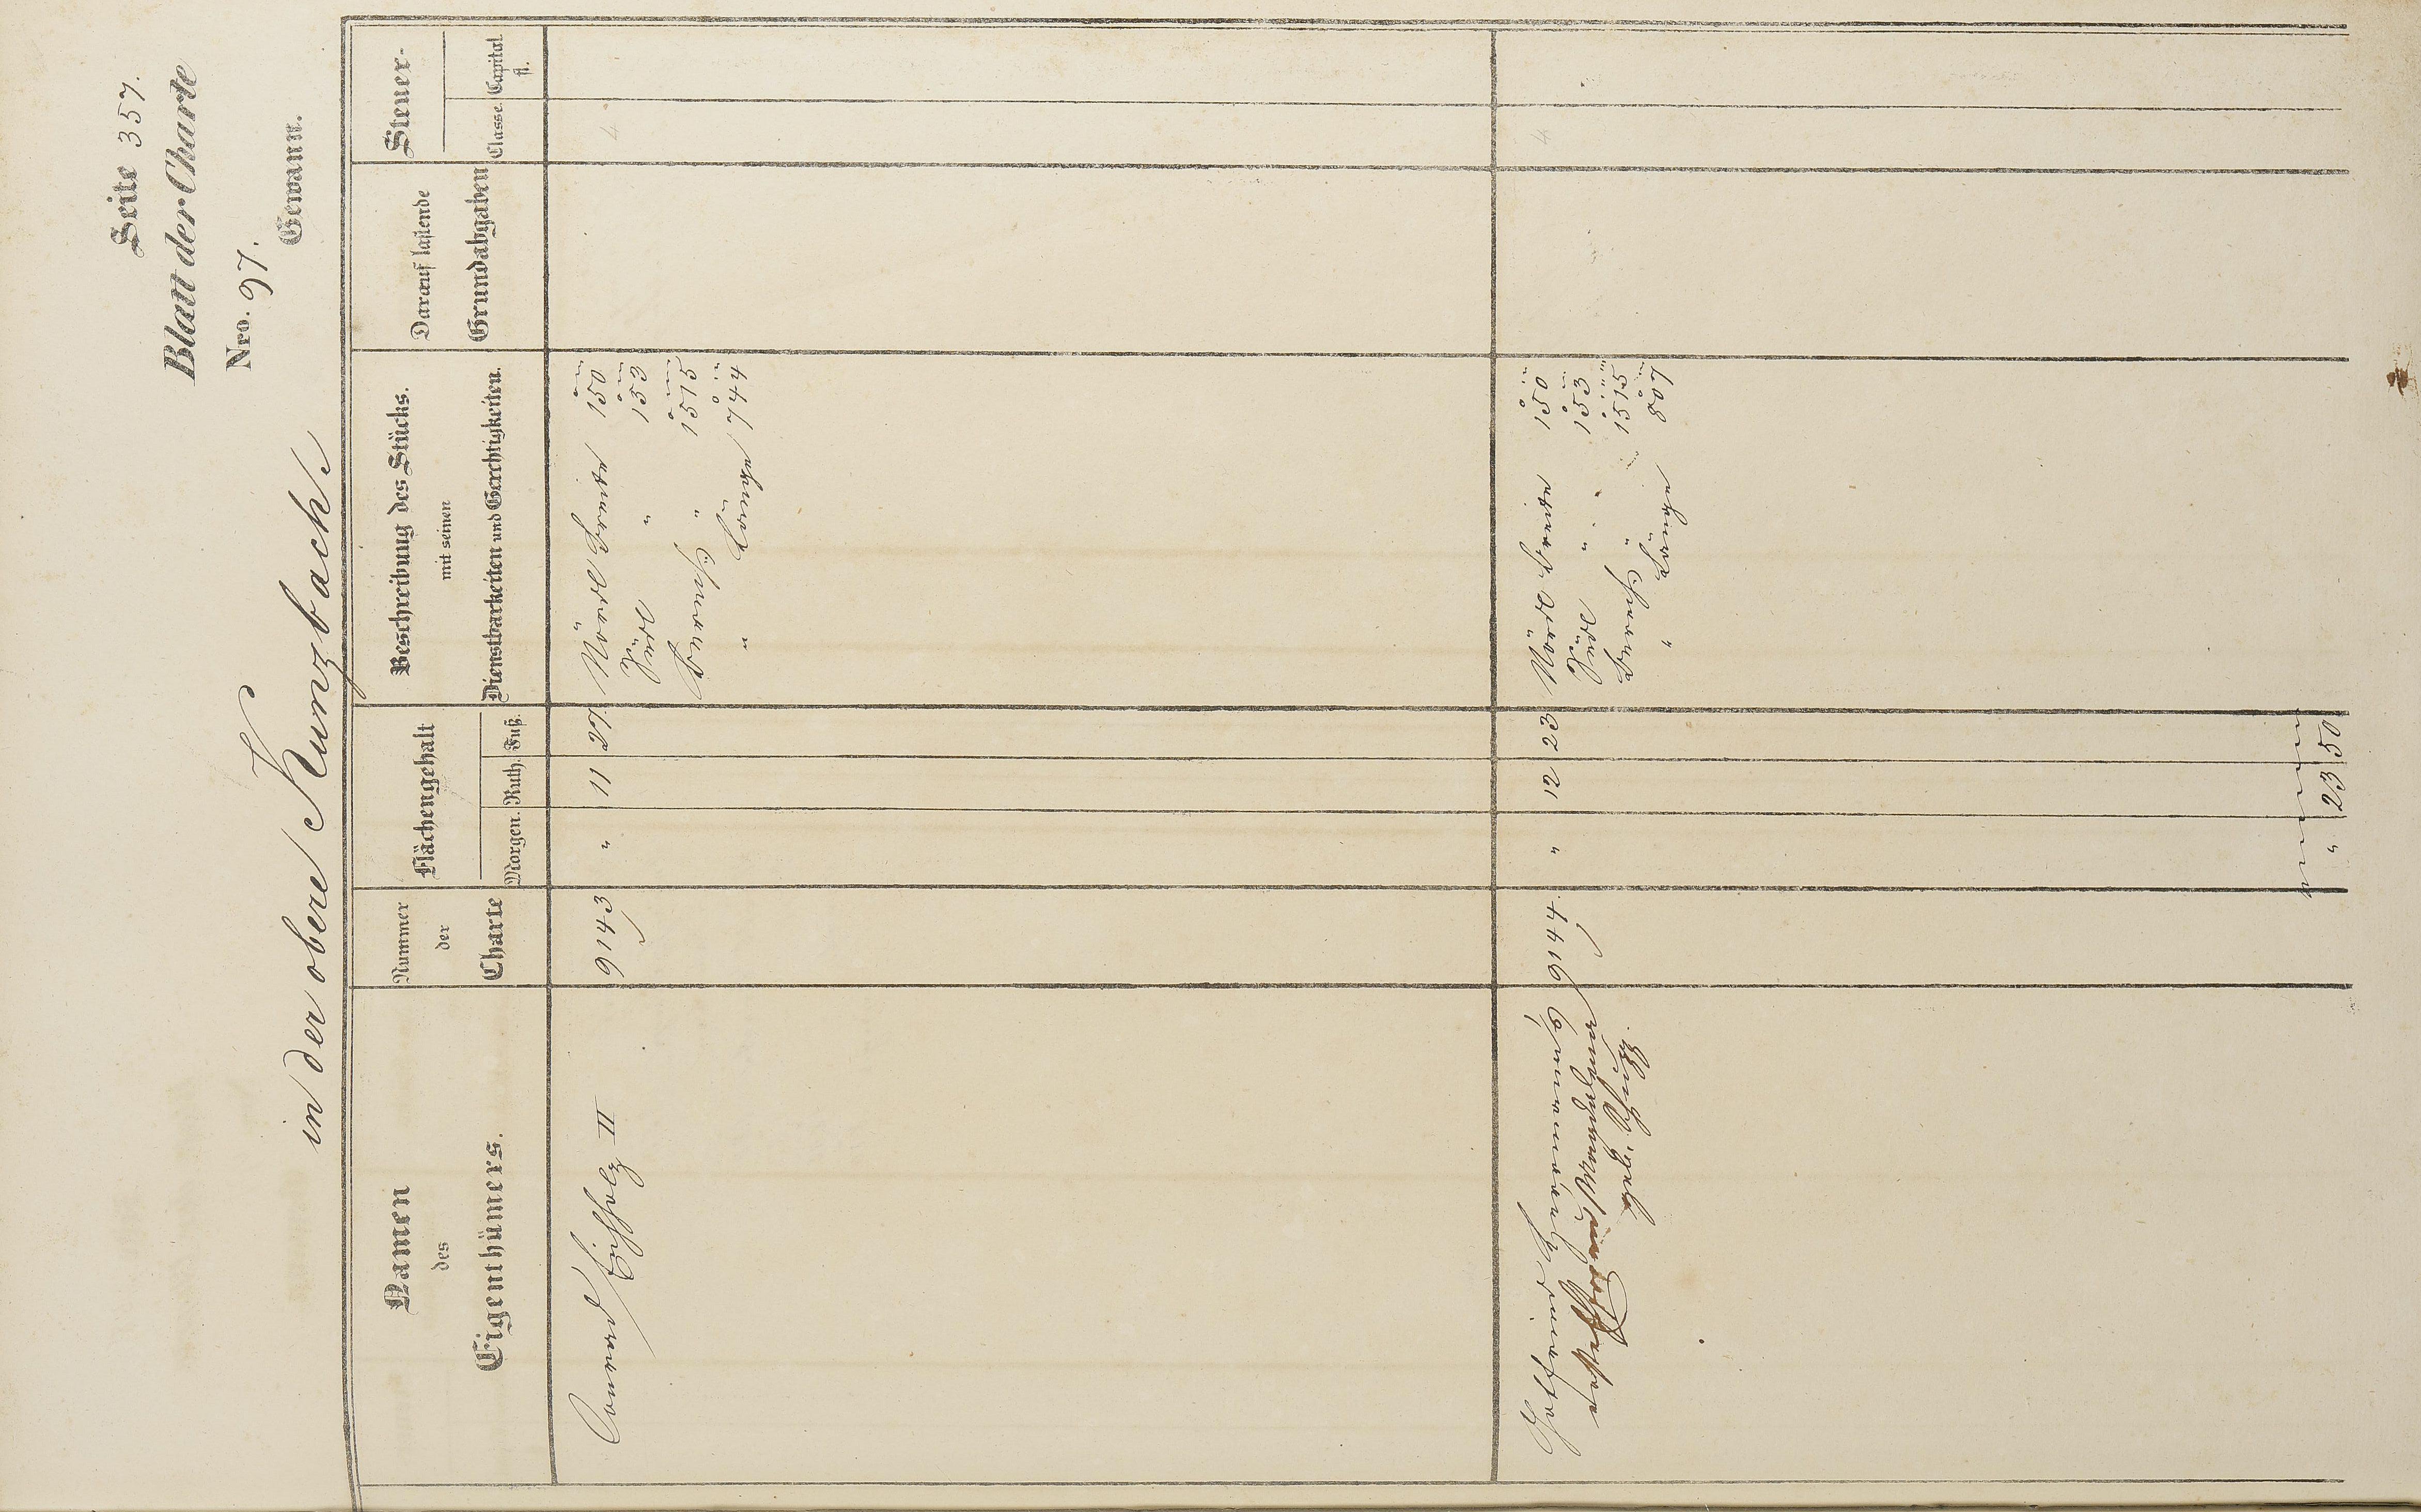 Seite 357.
Blatt der Charte
Nro. 97.
in der obere Kunzbach Gewann.
Namen des Eigenthümers.
Nummer der Charte
Flächengehalt
Morgen. Ruth. Fuß.
Beschreibung des Stücks.
mit seinen
Dienstbarkeiten und Gerechtigkeiten.
Darauf lastende
Grundabgaben
Steuer-
Classe. Capital fl.
Conrad Eichholz II 9143 " 11 27. Nördl Breite 150 4
Südl " 153
" 1515
" Länge 744
9144. " 12 23 Nördl Breite 150 4
Südl " 153
" 1515
" Länge 807
" 23 50